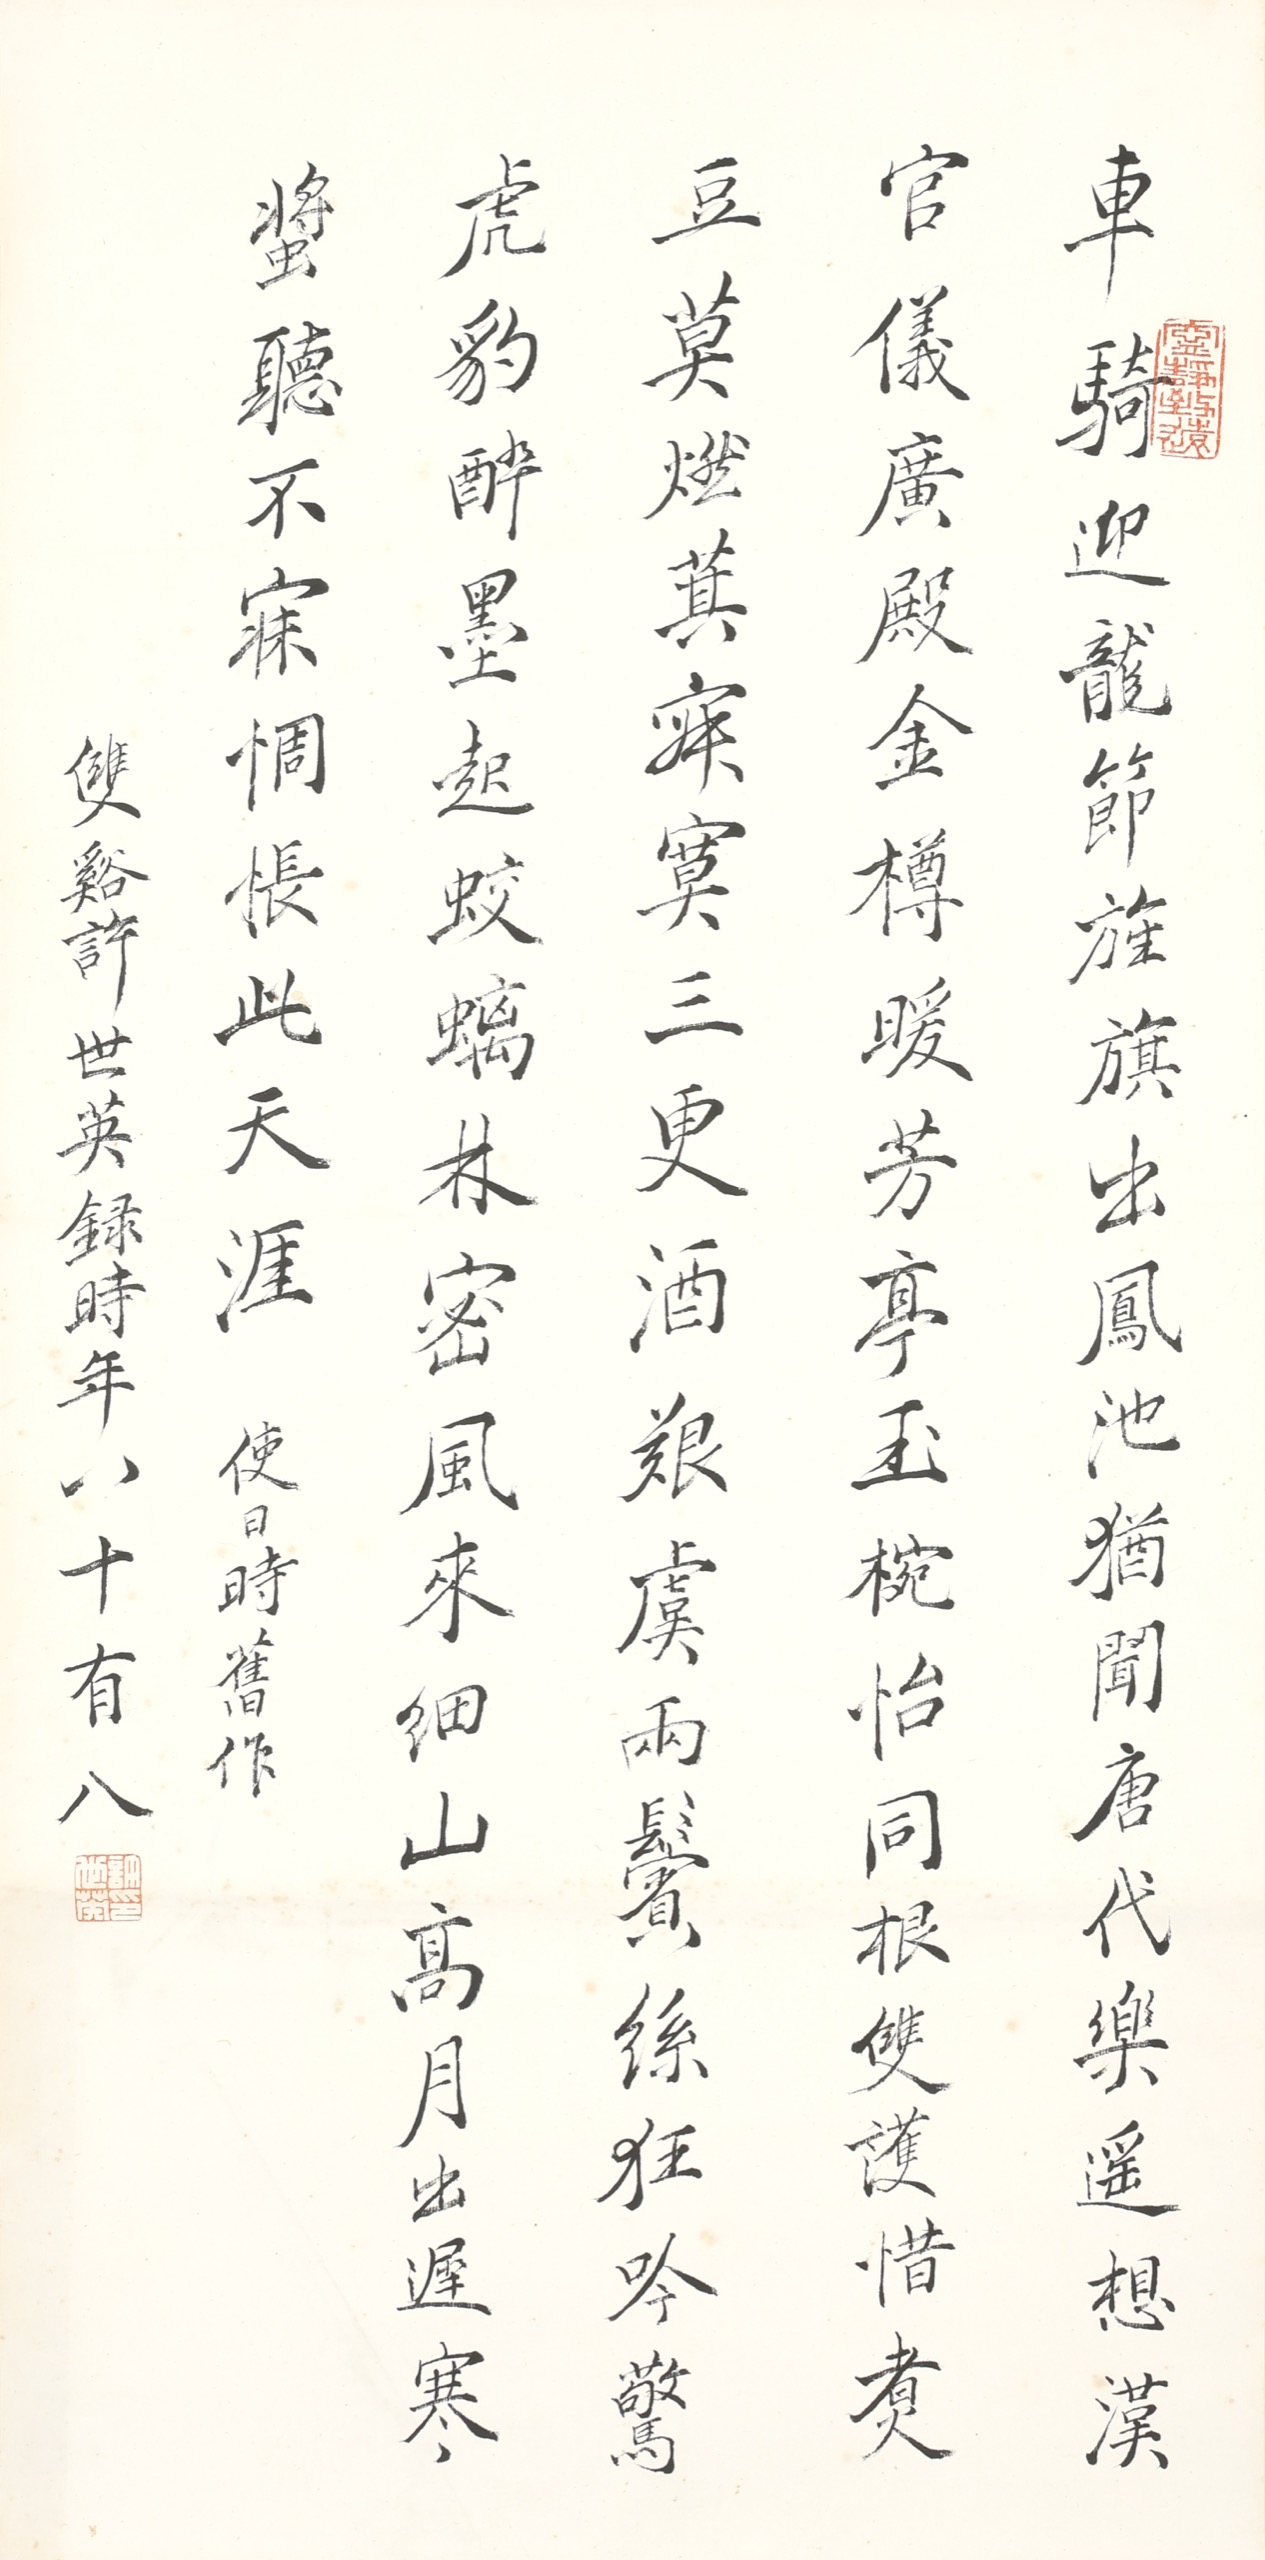 車騎迎龍節旌旗出鳳池猶聞唐代樂遥想漢
官儀廣殿金樽暖芳亭玉椀怡同根雙護惜煮
豆莫燃萁寂寞三更酒艱虞兩鬢絲狂吟驚
虎豹醉墨起蛟螭林密風來细山高月出遲寒
螿聽不寐惆悵此天涯 使日時舊作
雙谿許世英録時年八十有八
寧靜致遠
許世英印